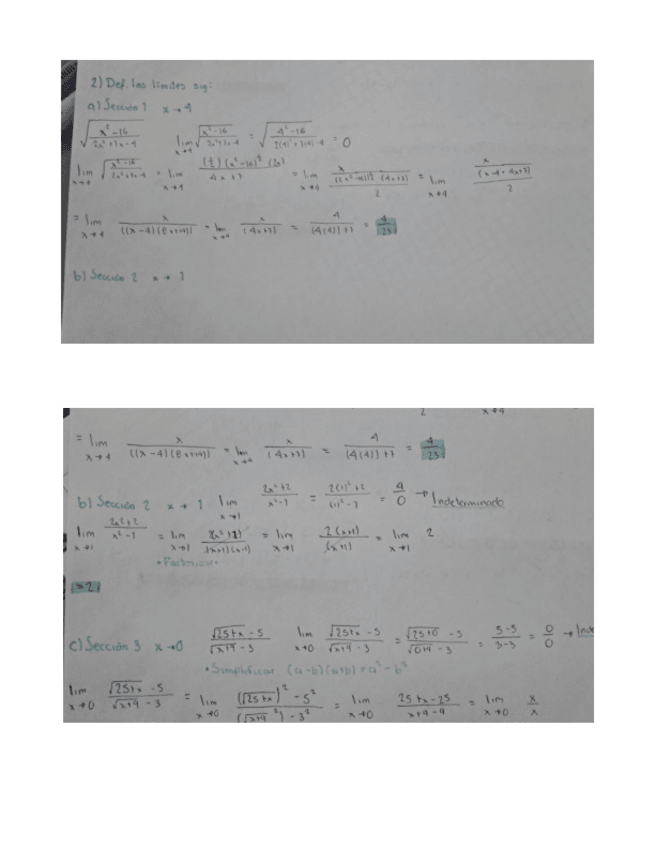 2) Def. los límites sig:
a) Sección 1 x → 4
√(x²-16 / 2x²+3x-4) lim x→4 √(x²-16 / 2x²+3x-4) = √(4²-16 / 2(4)²+3(4)-4) = 0
lim x→4 √(x²-16 / 2x²+3x-4) = lim x→4 (½)(x²-16)(2x) / 4x+3 = lim x→4 = lim x→4
= lim x→4 x / = lim x→4 x / (4x+3) = 4 / (4(4))+3 = 4/23
b) Sección 2 x → 1
= lim x→4 x / = lim x→4 x / (4x+3) = 4 / (4(4))+3 = 4/23
b) Sección 2 x → 1 lim x→1 2x²+2 / x²-1 = 2(1)²+2 / (1)²-1 = 4/0 → Indeterminado
lim x→1 2x²+2 / x²-1 = lim x→1 / (x+1)(x-1) = lim x→1 2(x+1) / (x+1) = lim x→1 2
• Factorizar •
= 2
c) Sección 3 x → 0 √25+x - 5 / √x+9 - 3 lim x→0 √25+x - 5 / √x+9 - 3 = √25+0 - 5 / √0+9 - 3 = 5-5 / 3-3 = 0/0 → Inde
• Simplificar (a-b)(a+b) = a² - b²
lim x→0 √25+x - 5 / √x+9 - 3 = lim x→0 (√25+x)² - 5² / (√x+9)² - 3² = lim x→0 25+x-25 / x+9-9 = lim x→0 x/x